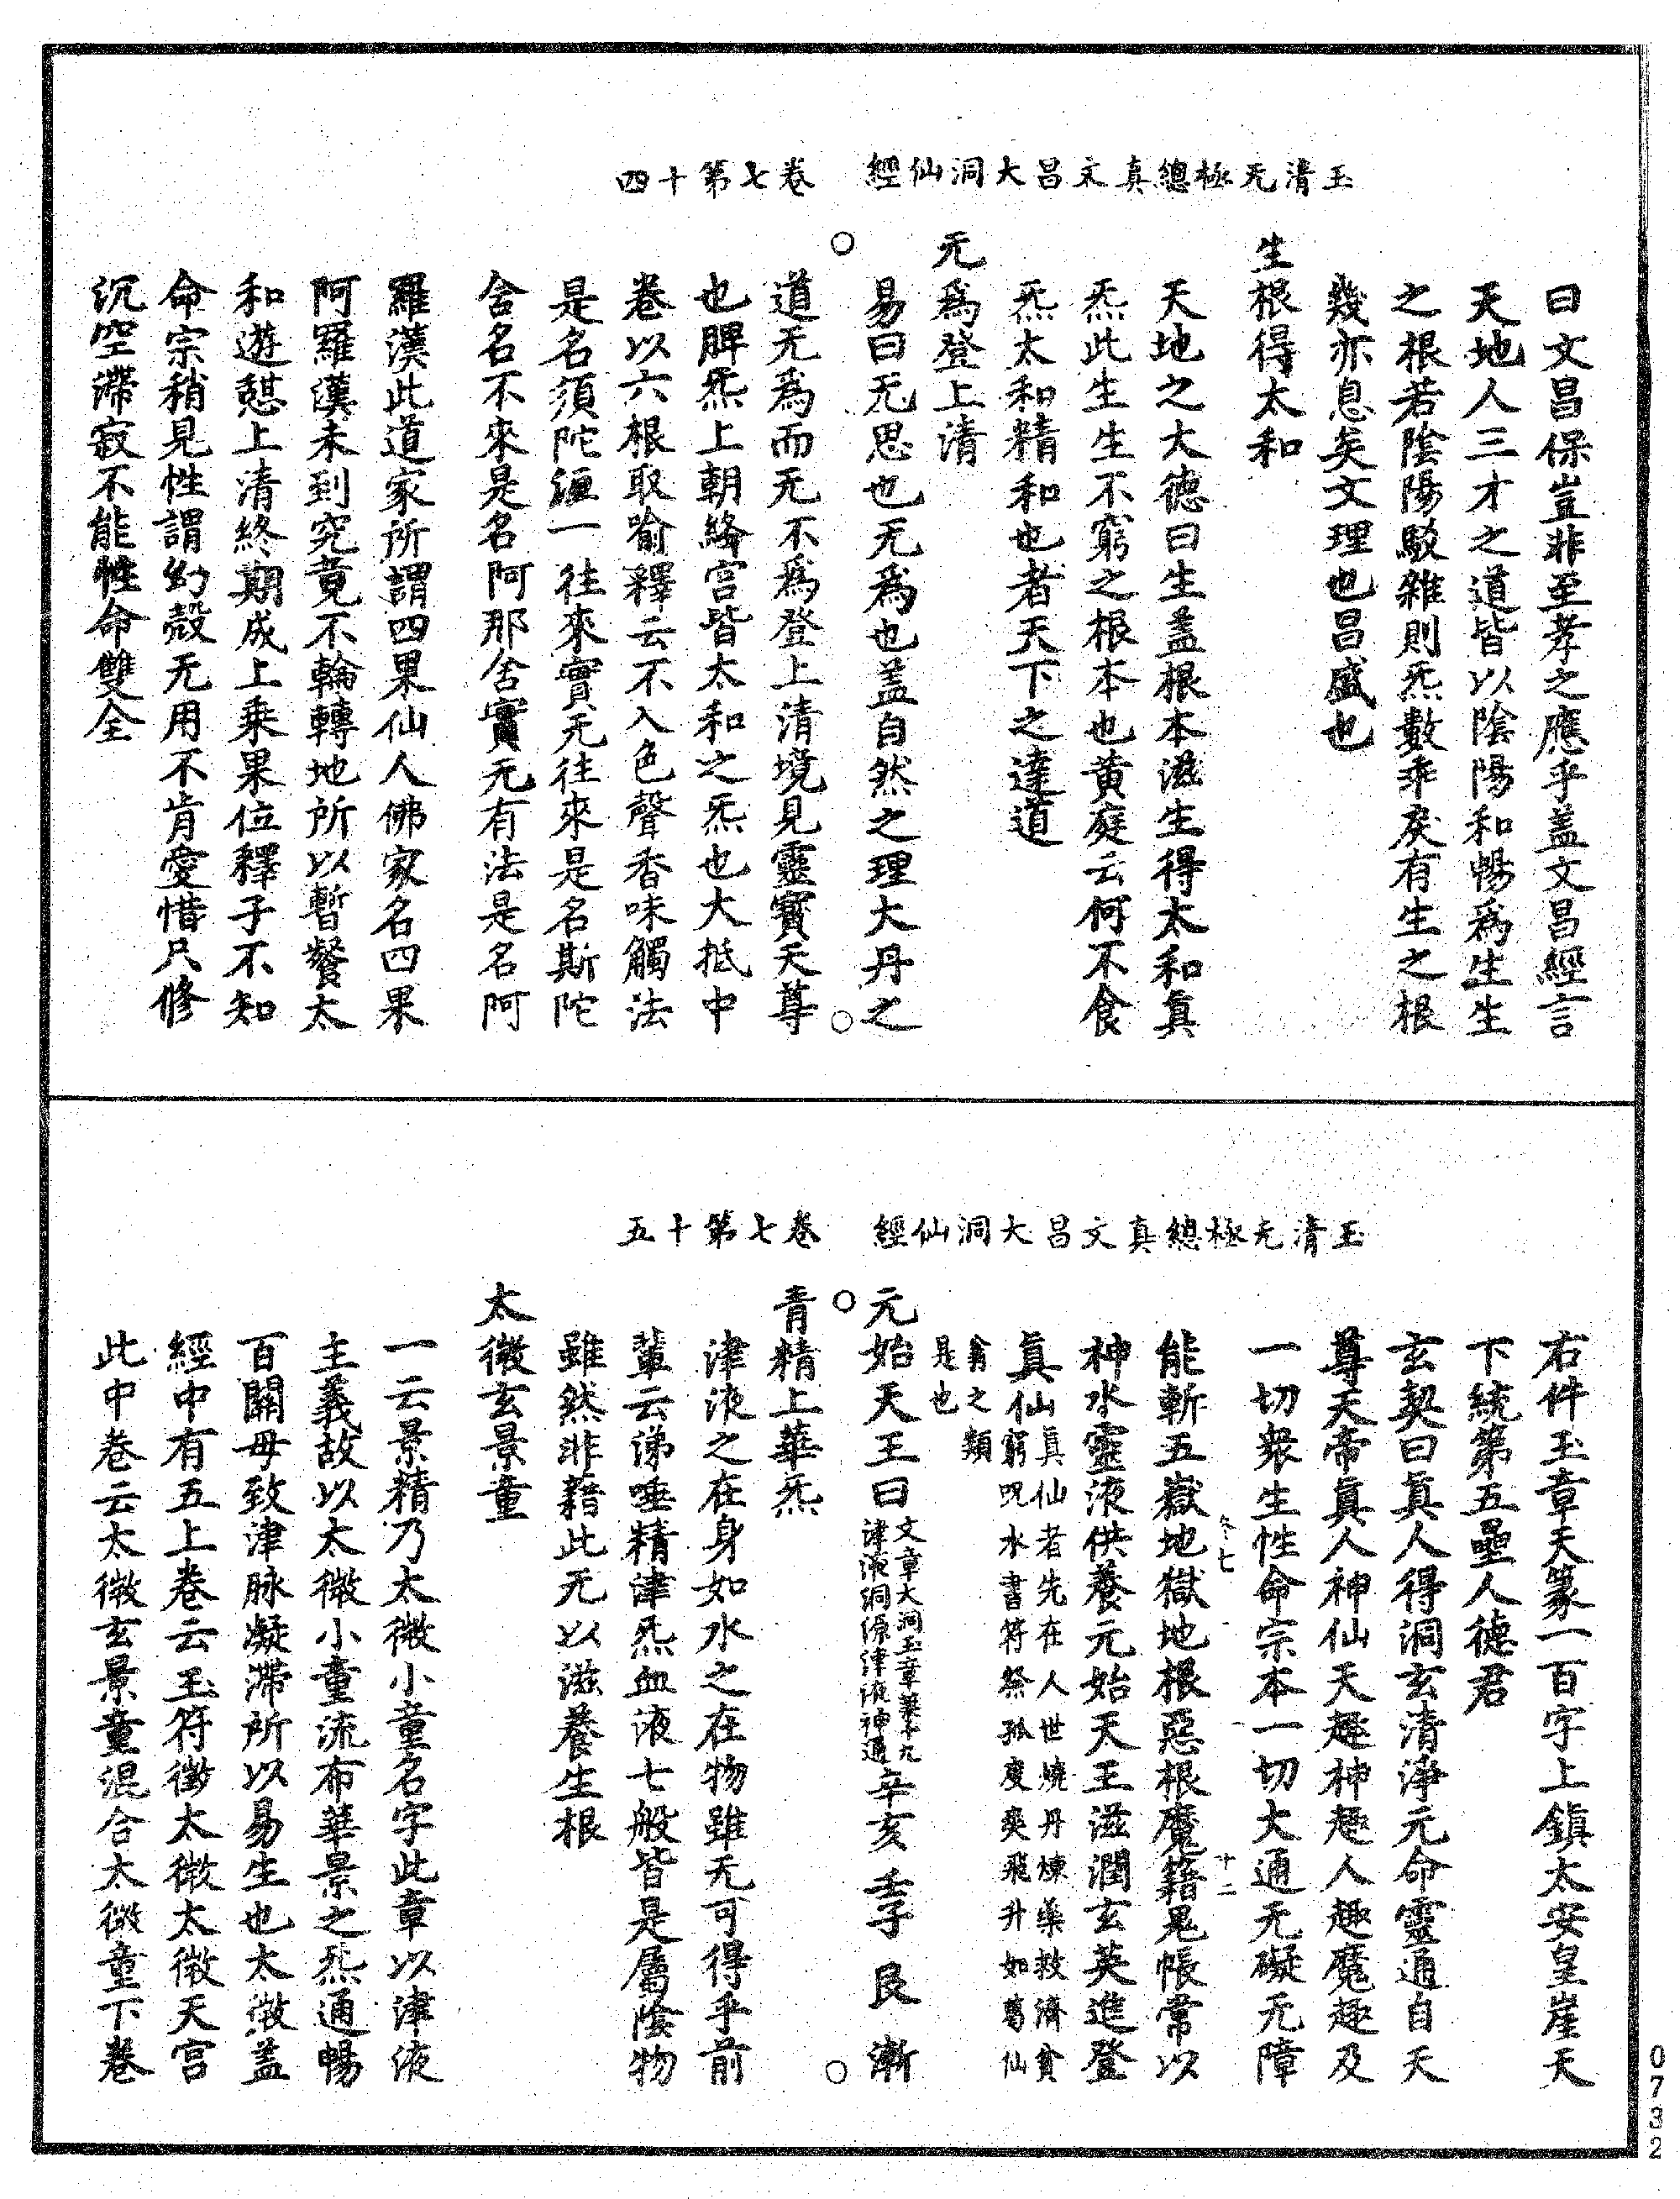 玉清无極總真文昌大洞仙經　卷七第十四
曰文昌保豈非至孝之應乎盖文昌經言
天地人三才之道皆以陰陽和暢爲生生
之根若陰陽駁雜則炁數乖戾有生之根
幾亦息矣文理也昌盛也
生根得太和
天地之大德曰生盖根本滋生得太和真
炁此生生不窮之根本也黄庭云何不食
炁太和精和也者天下之達道
无爲登上清
易曰无思也无爲也盖自然之理大丹之
道无爲而无不爲登上清境見靈寶天尊
也脾炁上朝絳宫皆太和之炁也大抵中
卷以六根取喻釋云不入色聲香味觸法
是名須陀洹一往來實无往來是名斯陀
含名不來是名阿那含實无有法是名阿
羅漢此道家所謂四果仙人佛家名四果
阿羅漢未到究竟不輪轉地所以暫餐太
和遊憇上清終期成上乘果位釋子不知
命宗稍見性謂幻殼无用不肯愛惜只修
沉空滯寂不能性命雙全
玉清无極總真文昌大洞仙經　卷七第十五
右件玉章天篆一百字上鎮太安皇崖天
下統第五壘人德君
玄契曰真人得洞玄清淨元命靈通自天
尊天帝真人神仙天趣神趣人趣魔趣及
一切衆生性命宗本一切大通无礙无障
卷七　十二
能斬五嶽地獄地根惡根魔籍鬼帳常以
神水靈液供養元始天王滋潤玄英進登
真仙窮真仙者先在人世燒丹煉藥救濟貧
呪水書符祭孤度爽飛升如葛仙
翁之類
是也
元始天王曰文章大洞玉章第十九
津液洞源津液神通辛亥 壬子 艮 漸
青精上華炁
津液之在身如水之在物雖无可得乎前
輩云涕唾精津炁血液七般皆是屬陰物
雖然非藉此无以滋養生根
太微玄景童
一云景精乃太微小童名字此章以津液
主義故以太微小童流布華景之炁通暢
百關毋致津脉凝滯所以易生也太微盖
經中有五上卷云玉符徵太微太微天宫
此中卷云太微玄景童混合太微童下卷
0732